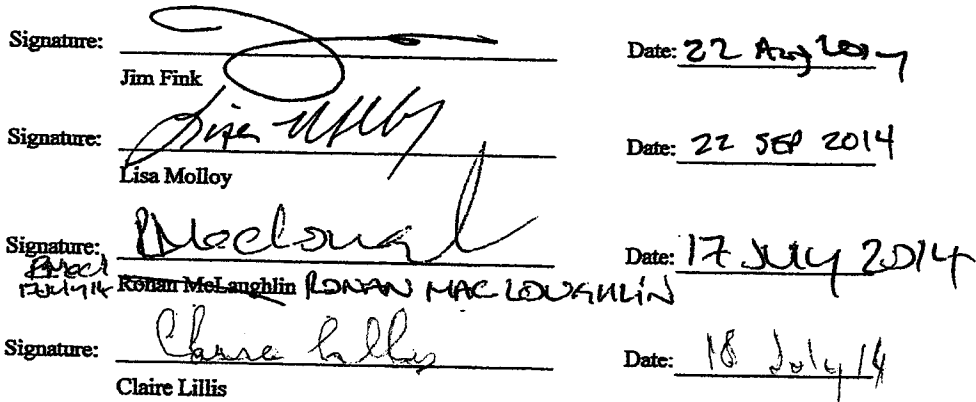 Signature: Date: 22 Aug 2014
Jim Fink
Signature: Lisa Molloy Date: 22 SEP 2014
Lisa Molloy
Signature: RMacLoughl Date: 17 July 2014
RMacL
17July14 Ronan McLaughlin RONAN MAC LOUGHLIN
Signature: Claire Lillis Date: 18 July 14
Claire Lillis